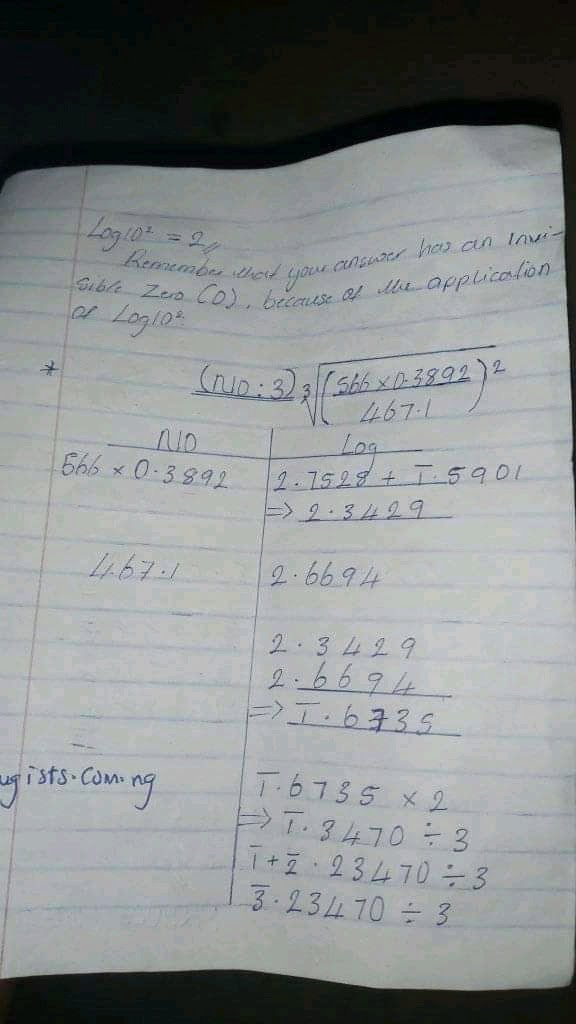 Log10² = 2,,
Remember that your answer has an Invi-
sible Zero (0), because of the application
of Log10².
* (NO: 3) ³√((566 × 0.3892)/467.1)²
NO Log
566 × 0.3892 2.7528 + 1̅.5901
=> 2.3429
467.1 2.6694
2.3429
2.6694
=> 1̅.6735
ugists.com.ng
1̅.6735 × 2
=> 1̅.3470 ÷ 3
1̅+2̅.23470 ÷ 3
3̅.23470 ÷ 3